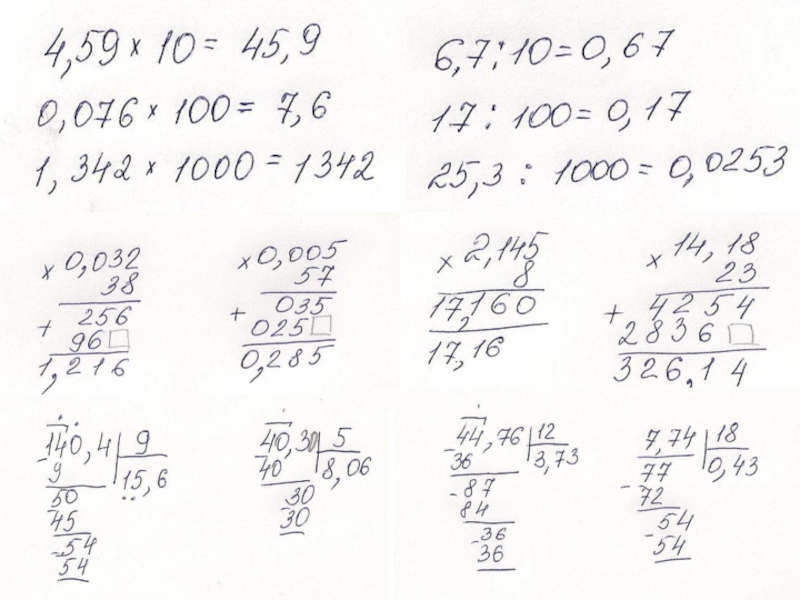 4,59 × 10 = 45,9
0,076 × 100 = 7,6
1,342 × 1000 = 1342
6,7 : 10 = 0,67
17 : 100 = 0,17
25,3 : 1000 = 0,0253
× 0,032
38
+ 256
96□
1,216
× 0,005
57
+ 035
025□
0,285
× 2,145
8
17,160
17,16
× 14,18
23
+ 4254
2836□
326,14
140,4 | 9
- 9 15,6
50
- 45
- 54
54
40,30 | 5
- 40 8,06
30
- 30
44,76 | 12
- 36 3,73
- 87
84
- 36
36
7,74 | 18
77 0,43
- 72
54
- 54